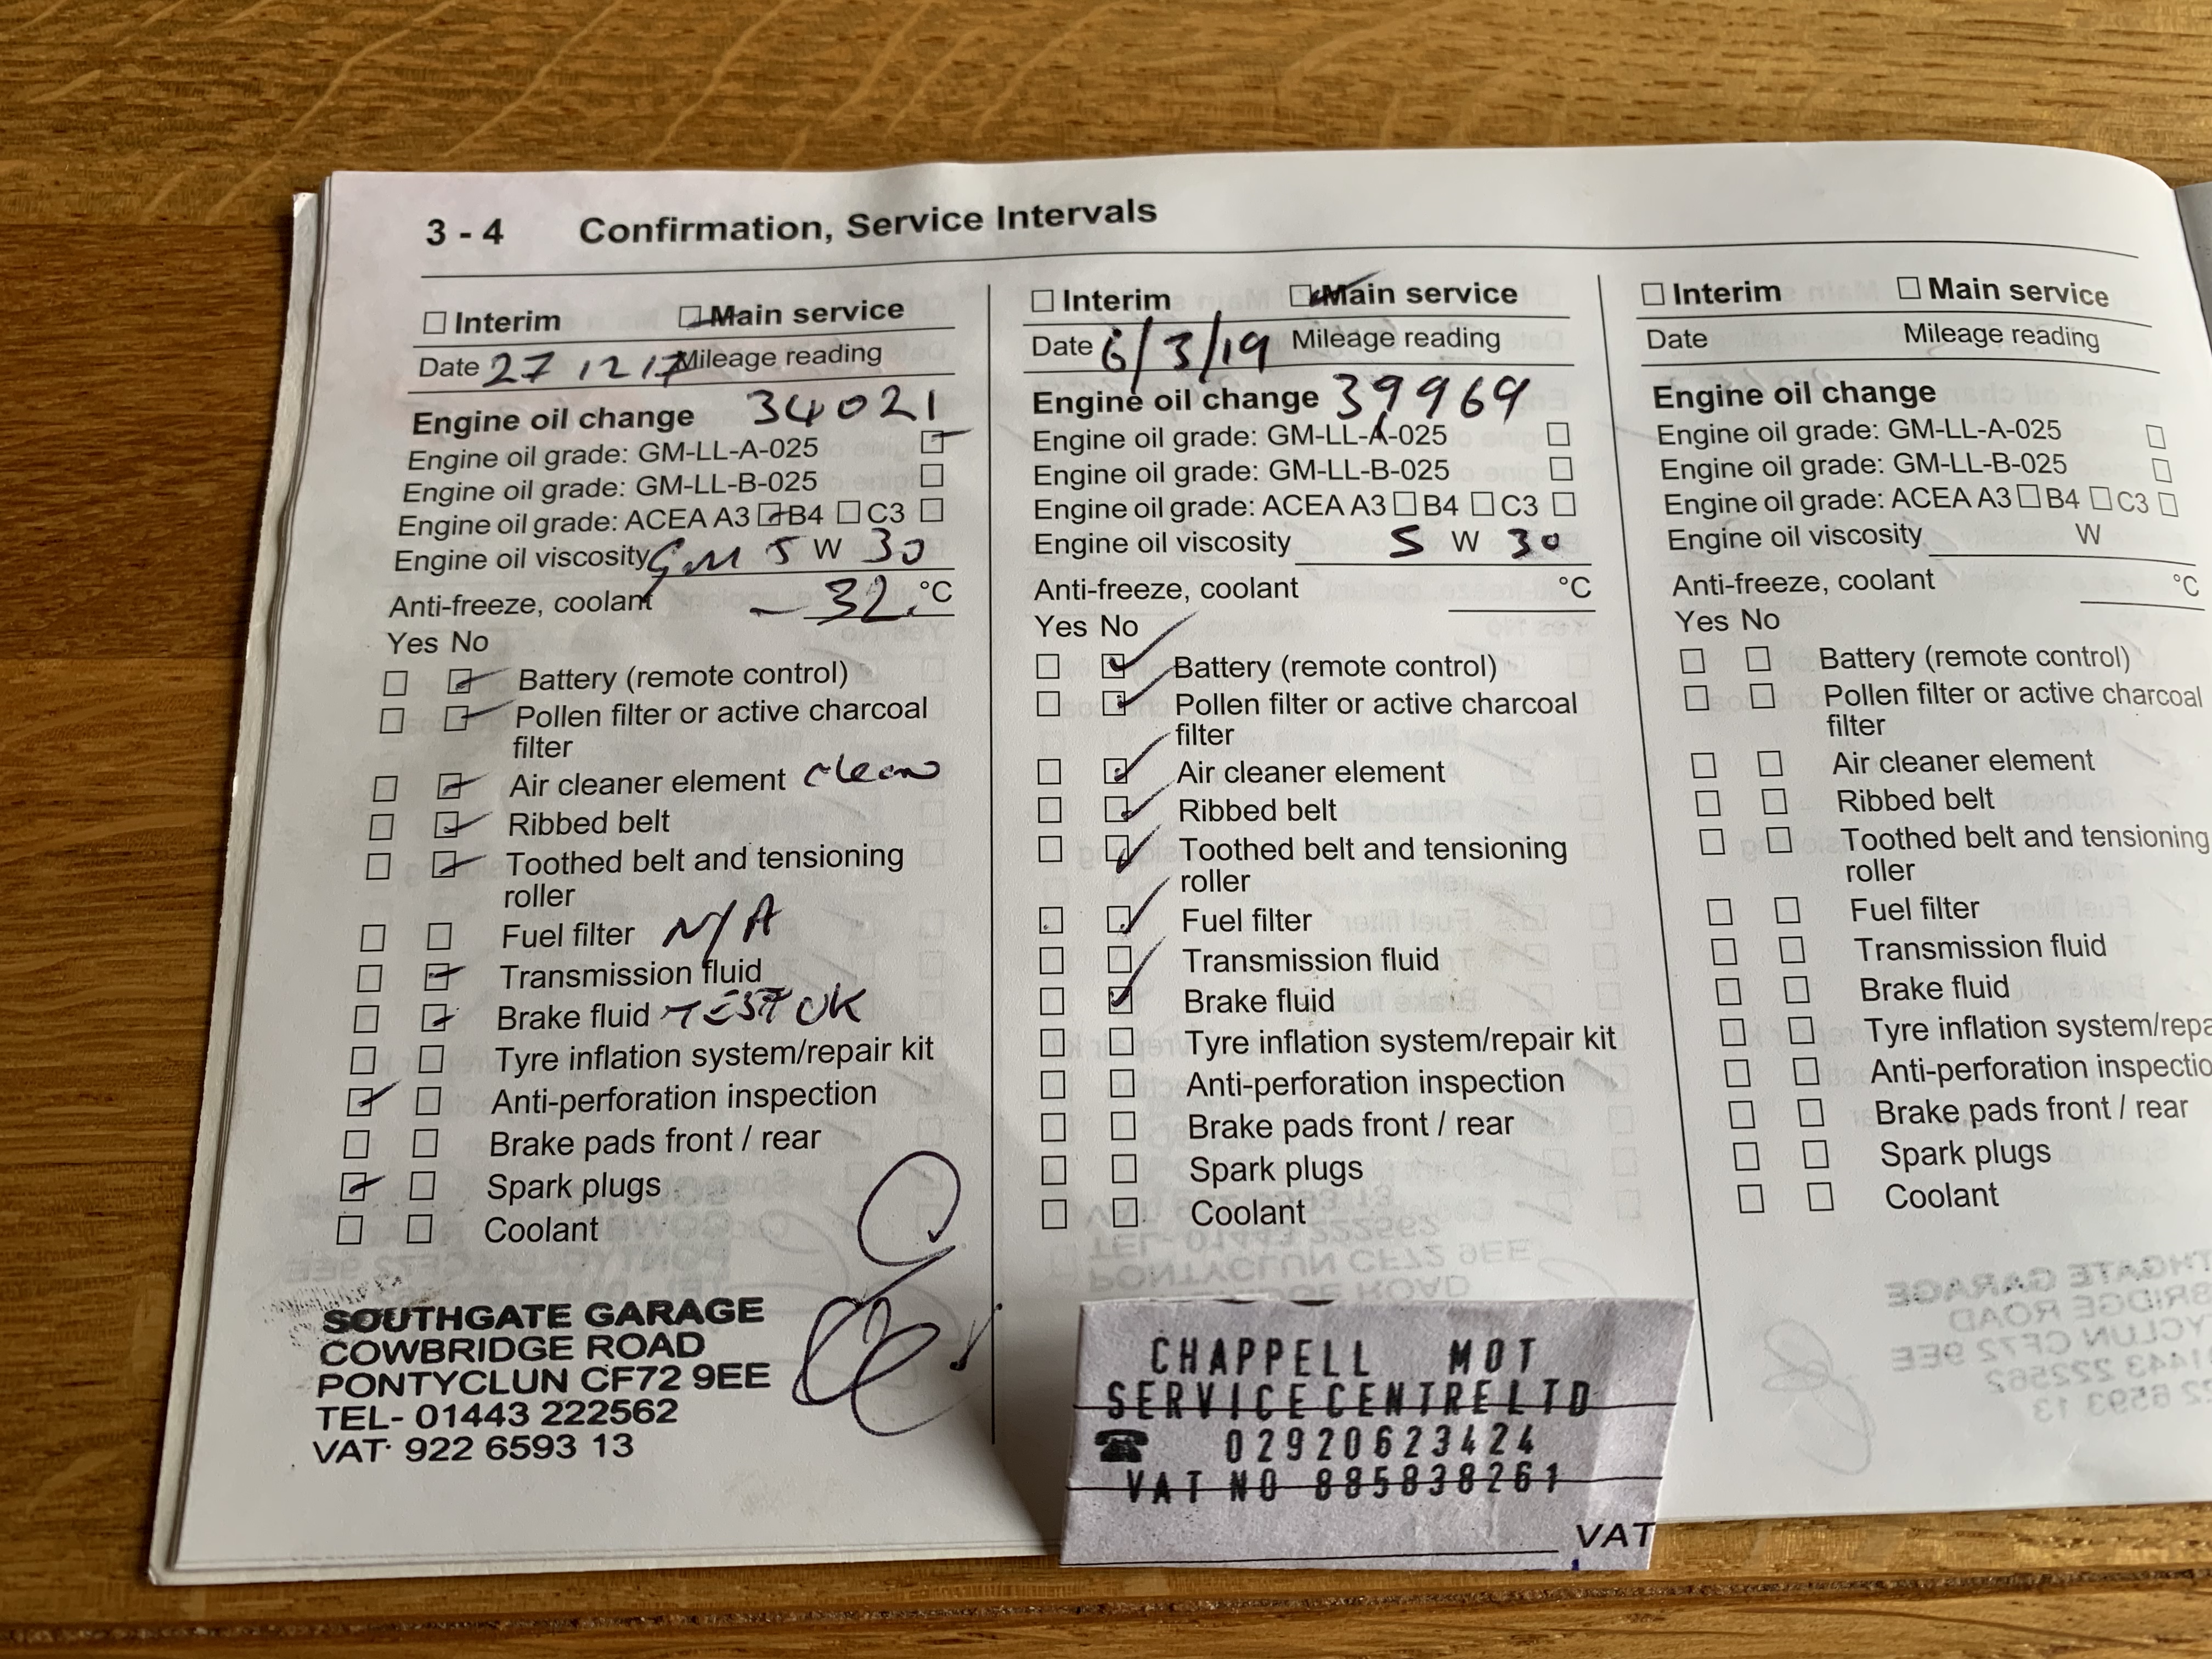 3 - 4 Confirmation, Service Intervals
Interim Main service
Date 27 12 17 Mileage reading
Engine oil change 34021
Engine oil grade: GM-LL-A-025
Engine oil grade: GM-LL-B-025
Engine oil grade: ACEA A3 B4 C3
Engine oil viscosity GM 5 W 30
Anti-freeze, coolant -32 °C
Yes No
Battery (remote control)
Pollen filter or active charcoal
filter
Air cleaner element clean
Ribbed belt
Toothed belt and tensioning
roller
Fuel filter N/A
Transmission fluid
Brake fluid TEST OK
Tyre inflation system/repair kit
Anti-perforation inspection
Brake pads front / rear
Spark plugs
Coolant
SOUTHGATE GARAGE
COWBRIDGE ROAD
PONTYCLUN CF72 9EE
TEL- 01443 222562
VAT· 922 6593 13
Interim Main service
Date 6/3/19 Mileage reading
Engine oil change 39969
Engine oil grade: GM-LL-A-025
Engine oil grade: GM-LL-B-025
Engine oil grade: ACEA A3 B4 C3
Engine oil viscosity 5 W 30
Anti-freeze, coolant °C
Yes No
Battery (remote control)
Pollen filter or active charcoal
filter
Air cleaner element
Ribbed belt
Toothed belt and tensioning
roller
Fuel filter
Transmission fluid
Brake fluid
Tyre inflation system/repair kit
Anti-perforation inspection
Brake pads front / rear
Spark plugs
Coolant
CHAPPELL MOT
SERVICE CENTRE LTD
☎ 02920623424
VAT NO 885838261
VAT
Interim Main service
Date Mileage reading
Engine oil change
Engine oil grade: GM-LL-A-025
Engine oil grade: GM-LL-B-025
Engine oil grade: ACEA A3 B4 C3
Engine oil viscosity W
Anti-freeze, coolant °C
Yes No
Battery (remote control)
Pollen filter or active charcoal
filter
Air cleaner element
Ribbed belt
Toothed belt and tensioning
roller
Fuel filter
Transmission fluid
Brake fluid
Tyre inflation system/repa
Anti-perforation inspectio
Brake pads front / rear
Spark plugs
Coolant